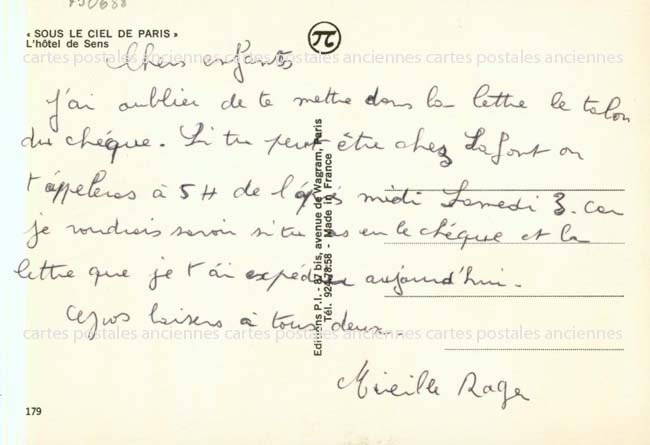 « SOUS LE CIEL DE PARIS »
L'hôtel de Sens
chers enfants
J'ai oublier de te mettre dans la lettre le talon
du chéque. Si tu peut être chez Lafont on
t'appeleras à 5H de l'après midi Samedi 3. Car
je voudrais savoir si tu as eu le chéque et la
lettre que je t'ai expédier aujourd'hui.
Gros baisers à tous deux.
Mireille Roger
179
Editions P.I. - 87 bis, avenue de Wagram, Paris
Tél. 924.78.58 - Made in France
cartes postales anciennes cartes postales anciennes cartes postales anciennes
cartes postales anciennes cartes postales anciennes cartes postales anciennes